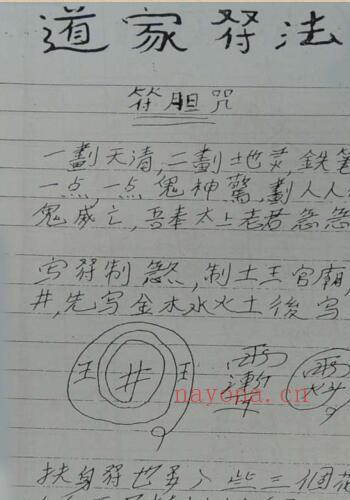 道家符法
符胆咒
一劃天清，二劃地灵，鉄笔
一点，一点鬼神驚，劃人人
鬼威亡，吾奉太上老君急急
写符制煞，制土王官廟，
井，先写金木水火土後写
王 井 王
nayona.cn
扶身符也要入些三個花